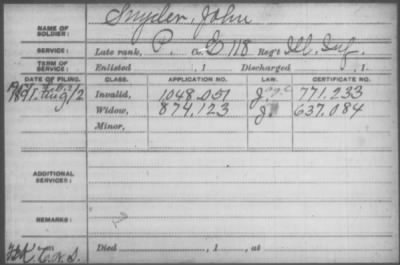 NAME OF SOLDIER: Snyder, John
SERVICE: Late rank, P. Co. E 118 Reg't Ill. Inf.
TERM OF SERVICE: Enlisted , 1 Discharged , 1 .
DATE OF FILING. CLASS. APPLICATION NO. LAW. CERTIFICATE NO.
1891. Aug/12 Invalid, 1048.051 771.233
Widow, 874.123 637.084
Minor,
ADDITIONAL SERVICES:
REMARKS:
Died , 1 , at